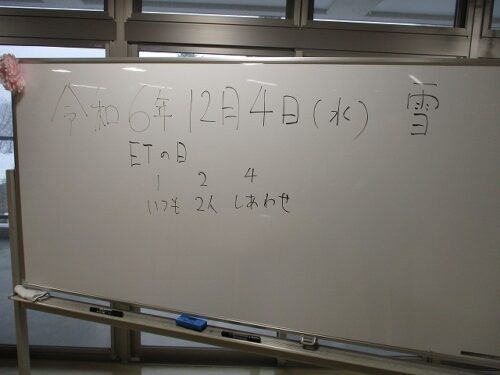 令和6年12月4日(水) 雪
ETの日
1 2 4
いつも 2人 しあわせ